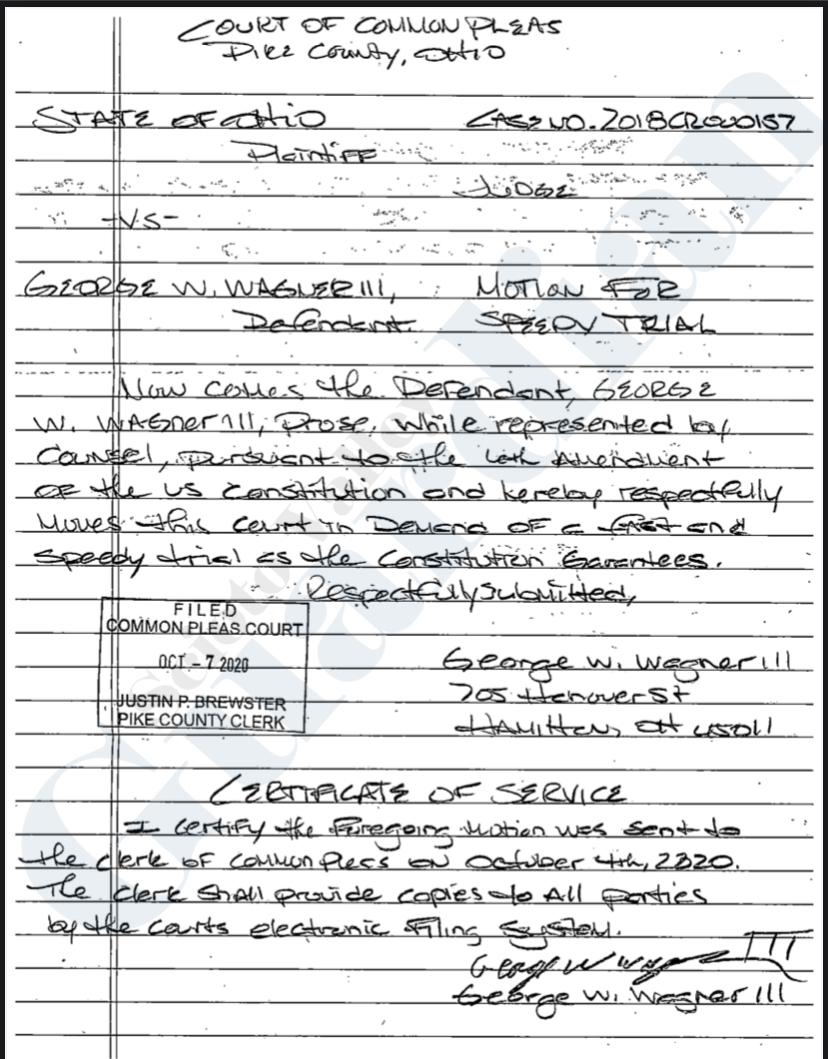 COURT OF COMMON PLEAS
Pike County, OHIO
STATE OF OHIO CASE NO. 2018CR000157
Plaintiff
JUDGE
-VS-
GEORGE W. WAGNER III, MOTION FOR
Defendant. SPEEDY TRIAL
Now comes the Defendant, GEORGE
W. WAGner III, Prose, While represented by
Counsel, pursuant to the 6th Amendment
OF the US Constitution and hereby respectfully
Moves this Court in Demand OF a fast and
Speedy trial as the Constitution Garantees.
Respectfully Submitted,
FILED
COMMON PLEAS COURT
OCT - 7 2020
JUSTIN P. BREWSTER
PIKE COUNTY CLERK
George W. Wagner III
705 Hanover St
HAMilton, OH 45011
CERTIFICATE OF SERVICE
I certify the Foregoing Motion was sent to
the clerk OF Common Pleas on October 4th, 2020.
The Clerk Shall provide copies to All parties
by the Courts electronic Filing System.
George W Wagner III
George W. Wagner III
Scioto Valley
Guardian